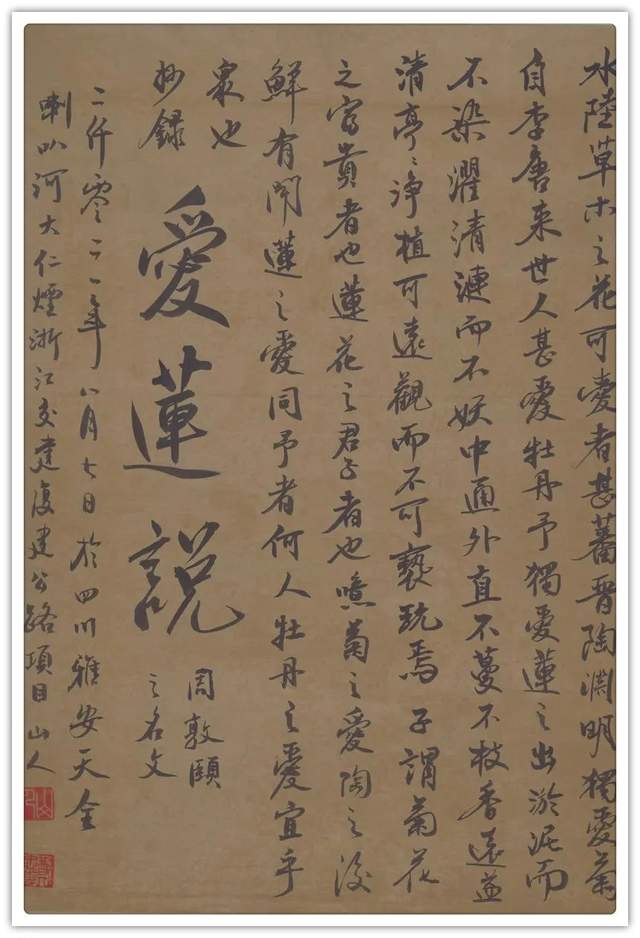 水陸草木之花可愛者甚蕃晉陶淵明獨愛菊
自李唐来世人甚愛牡丹予獨愛蓮之出淤泥而
不染濯清漣而不妖中通外直不蔓不枝香遠益
清亭〻淨植可遠觀而不可褻玩焉予謂菊花
之富貴者也蓮花之君子者也噫菊之愛陶之後
鮮有聞蓮之愛同予者何人牡丹之愛宜乎
衆也
抄録
愛蓮說
周敦頤
之名文
二仟零二一年八月七日於四川雅安天全
喇叭河大仁煙浙江交建復建公路項目山人